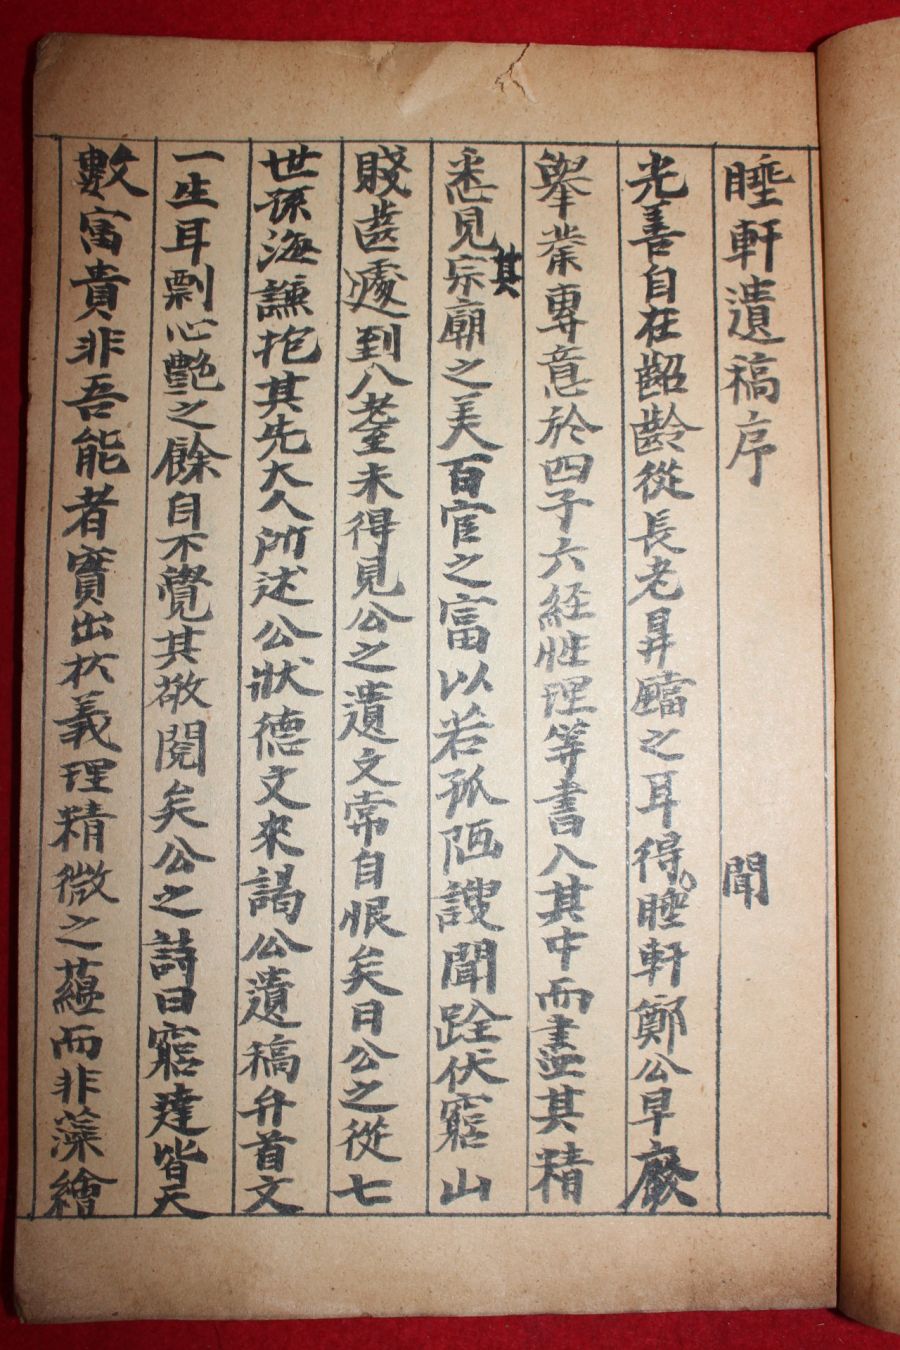 睡軒遺稿序
光善自在齠齡從長老昇䵻之耳得聞睡軒鄭公早廢
舉業專意於四子六經性理等書入其中而盡其精
悉見其宗廟之美百官之富以若孤陋謏聞跧伏窮山
賤齒遽到八耋未得見公之遺文常自恨矣日公之從七
世孫海謙抱其先大人所述公狀德文來謁公遺稿弁首文
一生耳剽心艶之餘自不覺其敬閱矣公之詩曰窮達皆天
數富貴非吾能者實出於義理精微之蘊而非藻繪